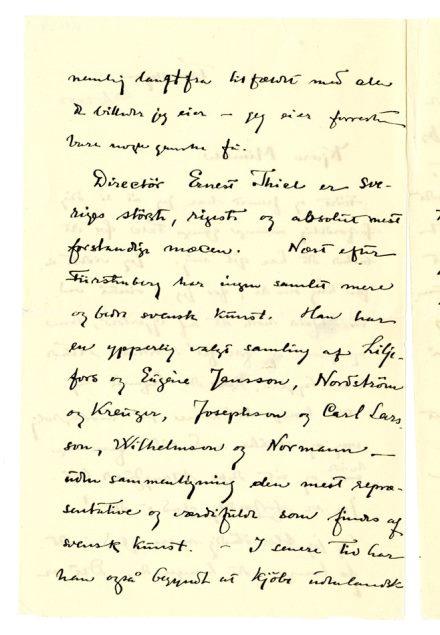 nemlig langtfra tilfreds med alle
de billeder jeg eier – jeg eier forresten
bare nogle ganske få.
Directör Ernest Thiel er Sve-
riges störste, rigeste og absolut mest
forstandige mæcen. Næst efter
Fürstenberg har ingen samlet mere
og bedre svensk kunst. Han har
en ypperlig valgt samling af Lilje-
fors og Eugène Jansson, Nordström
og Kreuger, Josephson og Carl Lars-
son, Wilhelmson og Normann –
uden sammenligning den mest repræ-
sentative og værdifulde som findes af
svensk kunst. – I senere Tid har
han også begyndt at kjöbe udenlandsk